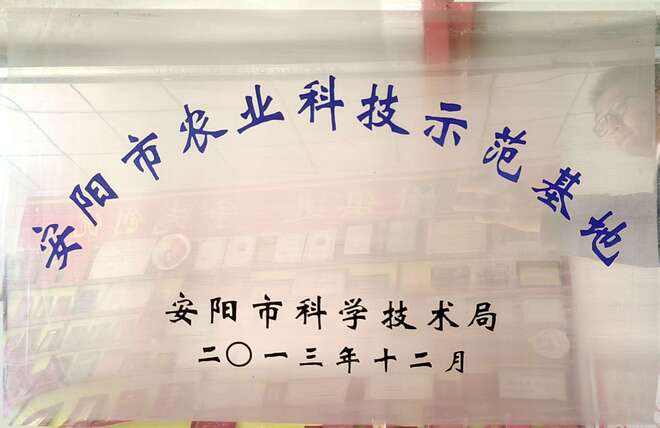 安阳市农业科技示范基地
安阳市科学技术局
二〇一三年十二月